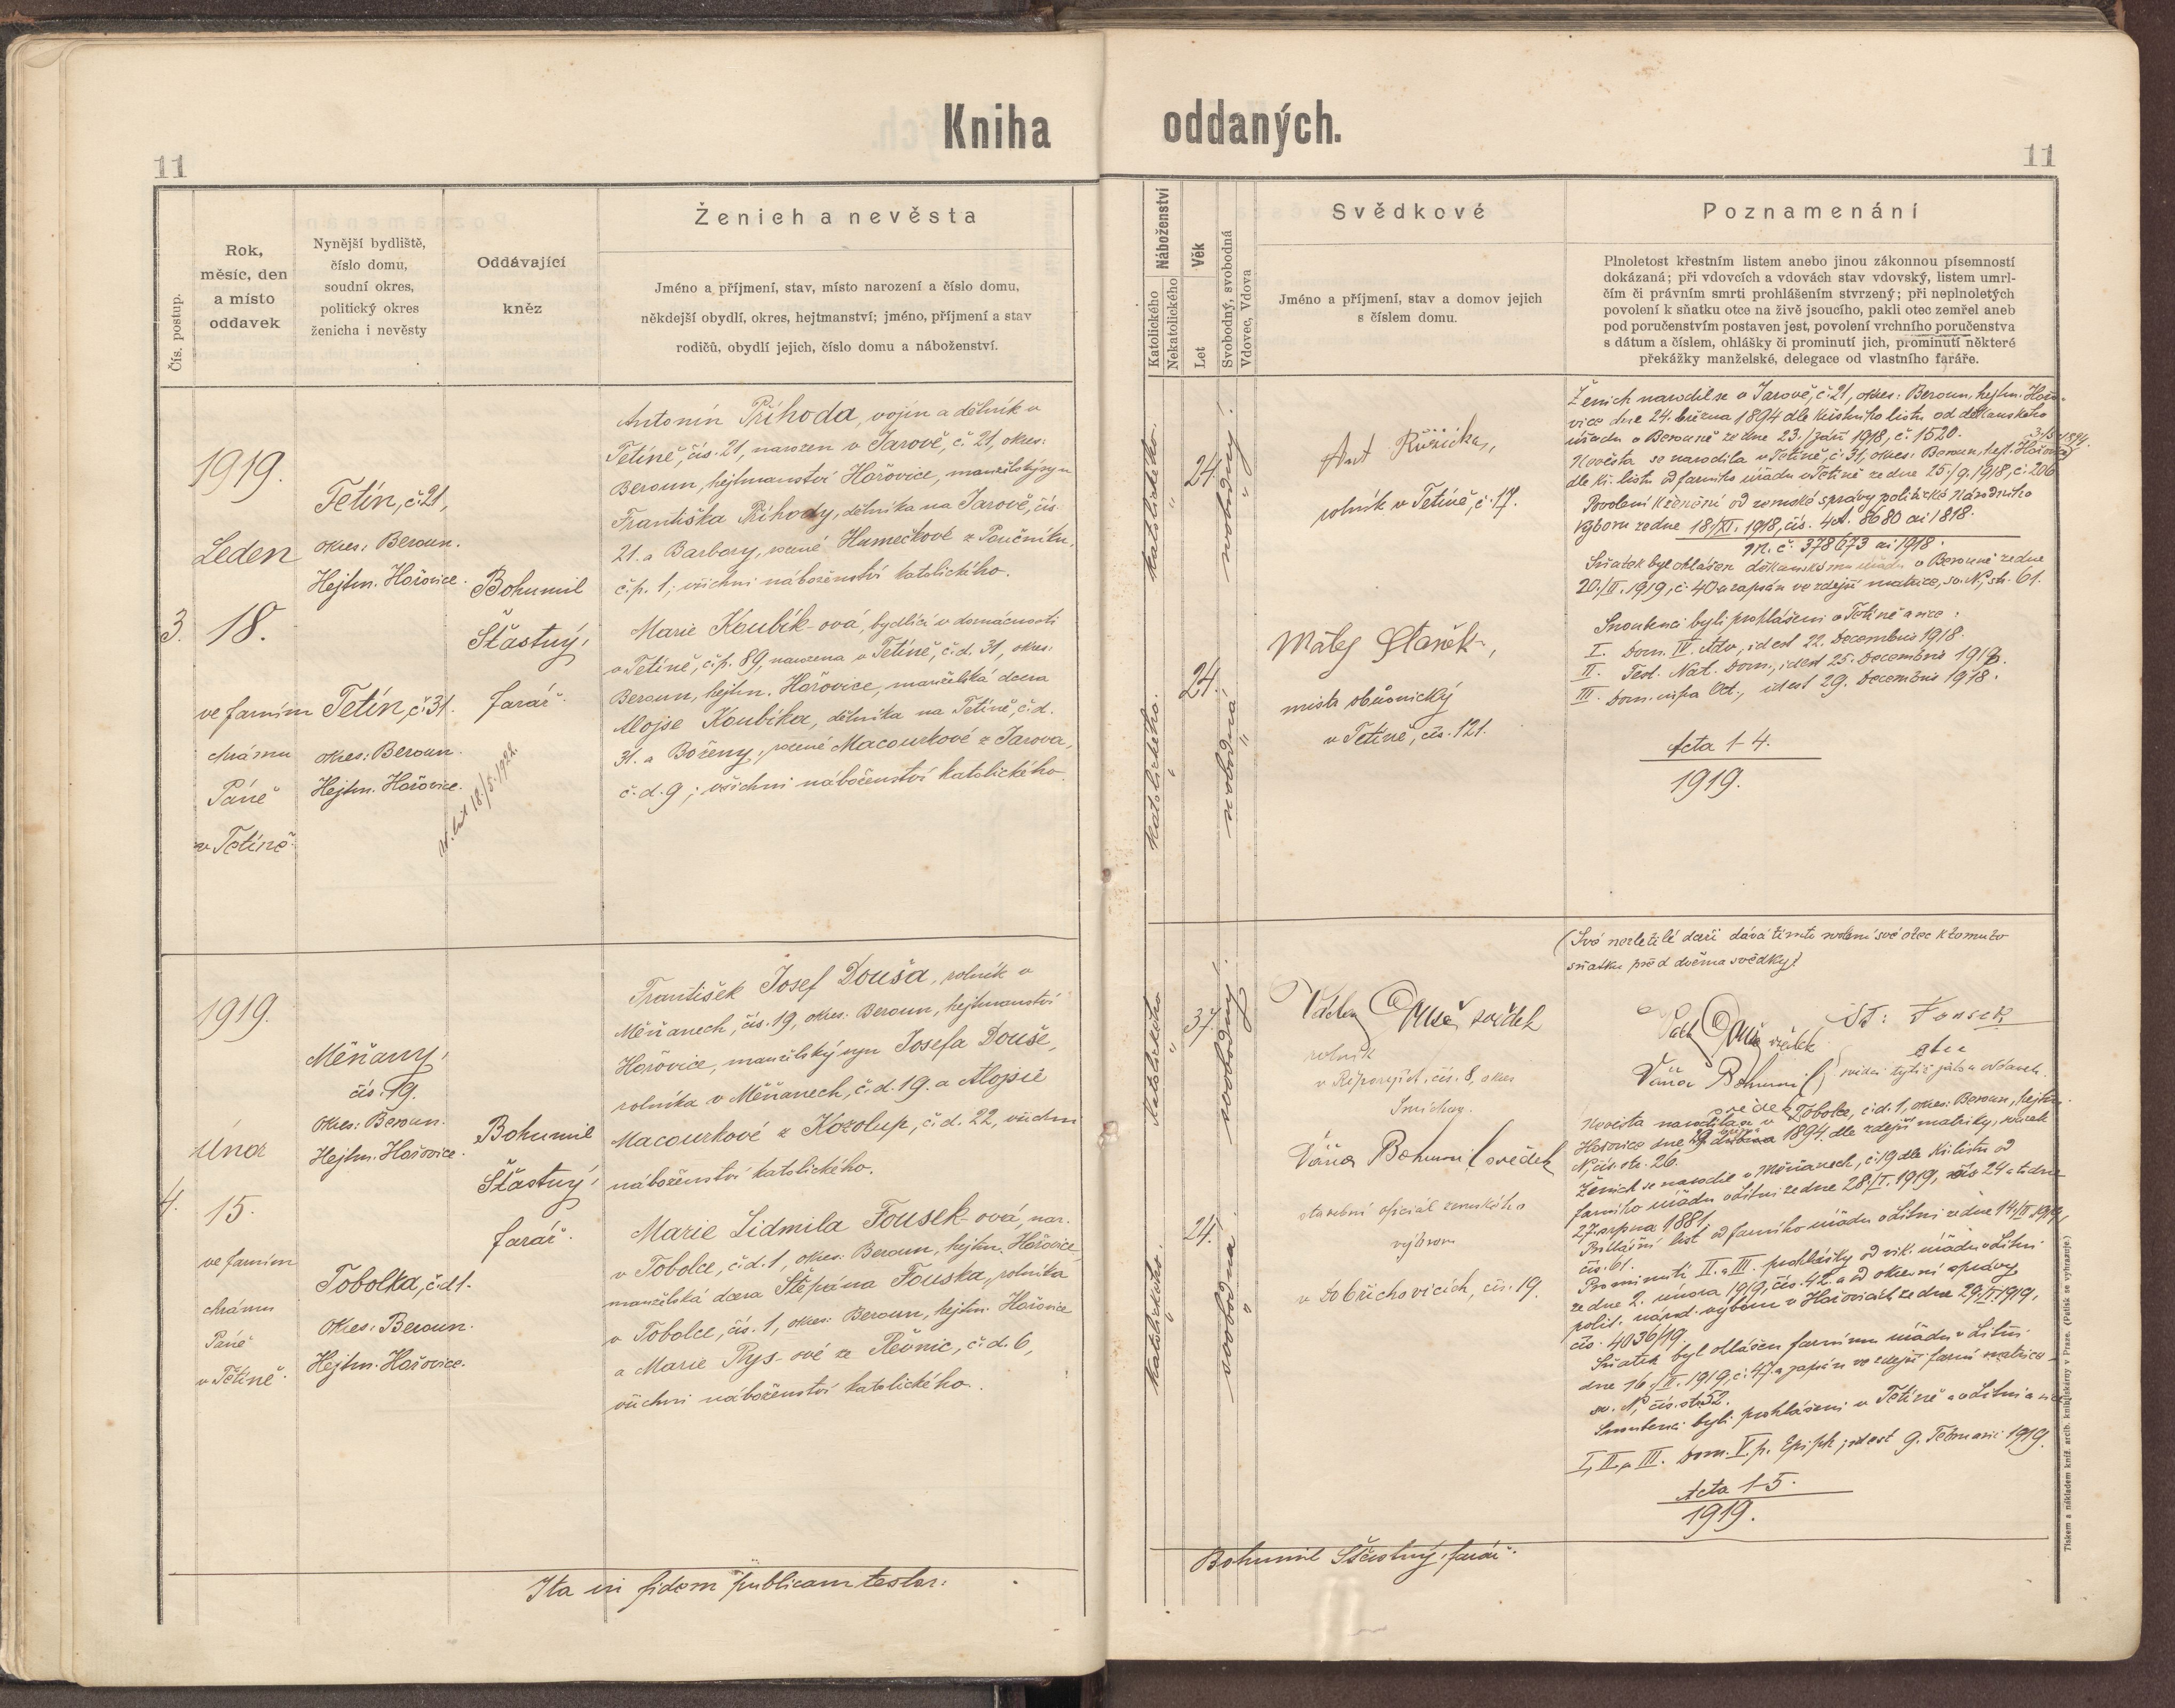 Kniha oddaných.
11
11
Čís. postup.
Rok,
měsíc, den
a místo
oddavek
Nynější bydliště,
číslo domu,
soudní okres,
politický okres
ženicha i nevěsty
Oddávající
kněz
Ženich a nevěsta
Jméno a příjmení, stav, místo narození a číslo domu,
někdejší obydlí, okres, hejtmanství; jméno, příjmení a stav
rodičů, obydlí jejich, číslo domu a náboženství.
Náboženství
Katolického
Nekatolického
Věk
Let
Svobodný, svobodná
Vdovec, Vdova
Svědkové
Jméno a příjmení, stav a domov jejich
s číslem domu.
Poznamenání
Plnoletost křestním listem anebo jinou zákonnou písemností
dokázaná; při vdovcích a vdovách stav vdovský, listem umrl-
čím či právním smrti prohlášením stvrzený; při neplnoletých
povolení k sňatku otce na živě jsoucího, pakli otec zemřel aneb
pod poručenstvím postaven jest, povolení vrchního poručenstva
s dátum a číslem, ohlášky či prominutí jich, prominutí některé
překážky manželské, delegace od vlastního faráře.
3.
1919.
Leden
18.
ve farním
chrámu
Páně
v Tetíně
Tetín, č. 21,
okres: Beroun.
Hejtm. Hořovice.
Tetín, č. 31.
okres: Beroun.
Hejtm. Hořovice.
Bohumil
Šťastný,
farář.
18./5. 1922.
Antonín Příhoda, vojín a dělník v
Tetíně, čís. 21, narozen v Jarově, č. 21, okres:
Beroun, hejtmanství Hořovice, manželský syn
Františka Příhody, dělníka na Jarově, čís.
21. a Barbory, rozené Humečkové z Poučníku,
č. p. 1; všichni náboženství katolického.
Marie Koubík-ová, bydlící v domácnosti
v Tetíně, č. p. 89, narozena v Tetíně, č. d. 31, okres:
Beroun, hejtm. Hořovice, manželská dcera
Alojse Koubíka, dělníka na Tetíně, č. d.
31. a Boženy, rozené Macourkové z Jarova,
č. d. 9; všichni náboženství katolického.
katolického.
"
24.
svobodný!
"
katolického.
"
24.
svobodná
"
Ant Růžička,
rolník v Tetíně, č. 17.
Matěj Staněk,
mistr obuvnický
v Tetíně, čís. 121.
Ženich narodil se v Jarově, č. 21, okres: Beroun, hejtm. Hořo-
vice dne 24. března 1894 dle křestního listu od děkanského
úřadu v Berouně ze dne 23./září 1918, č. 1520.
Nevěsta se narodila v Tetíně, č. 31, okres: Beroun, hejt. Hořovice
dle kř. listu od farního úřadu v Tetíně ze dne 25./9. 1918, č. 206
Povolení k ženění od zemské správy politické Národního
výboru ze dne 18./XI. 1918, čís. 8680 ai 1818.
č. 378673 ai 1918.
Sňatek byl ohlášen děkanskému úřadu v Berouně ze dne
20./II. 1919, č. 40 a zapsán ve zdejší matrice, sv. N, str. 61.
Snoubenci byli prohlášeni v Tetíně a sice:
I. Dom. IV. Adv, id est 22. Decembris 1918.
II. Fest. Nat. Dom., id est 25. Decembris 1918.
III. Dom. infra Oct., id est 29. Decembris 1918.
Acta 1-4.
1919.
4.
1919.
Únor
15.
ve farním
chrámu
Páně
v Tetíně.
Měňany,
čís. 19.
Okres: Beroun.
Hejtm. Hořovice.
Tobolka, č. d. 1.
Okres: Beroun.
Hejtm. Hořovice.
Bohumil
Šťastný,
farář.
František Josef Douša, rolník v
Měňanech, čís. 19, okres: Beroun, hejtmanství
Hořovice, manželský syn Josefa Douše,
rolníka v Měňanech, č. d. 19. a Alojsie
Macourkové z Kozolup, č. d. 22, všichni
náboženství katolického.
Marie Lidmila Fousek-ová, nar.
v Tobolce, č. d. 1, okres: Beroun, hejtm. Hořovice,
manželská dcera Štěpána Fouska, rolníka
v Tobolce, čís. 1, okres: Beroun, hejtm. Hořovice
a Marie Rys-ové ze Řevnic, č. d. 6,
všichni náboženství katolického.
katolického
"
37.
svobodný!
"
katolického.
"
24.
svobodná!
"
svědek
rolník
v Řeporyjích, čís. 8, okres
Smíchov.
Váňa Bohumil svědek
stavební oficiál zemského
výboru
v Dobřichovicích, čís. 19.
(Své nezletilé dceři dává tímto svolení své otec k tomuto
sňatku před dvěma svědky)
svědek
Št: Fousek
otec
Váňa Bohumil
svědek
Nevěsta narodila se v Tobolce, č. d. 1, okres: Beroun, hejtm.
Hořovice dne 29. 1894 dle zdejší matriky, svazek
N, čís. str. 26.
Ženich se narodil v Měňanech, č. 19 dle kř. listu od
farního úřadu v Litni ze dne 28./I. 1919, čís. 24 a to dne
27. srpna 1881.
Ohlášní list od farního úřadu v Litni ze dne 14/II 1919,
čís. 61.
Prominutí II. a III. prohlášky od vik. úřadu v Litni
ze dne 2. února 1919, čís. 42. a od okresní správy
polit. národ. výboru v Hořovicích ze dne 29./I. 1919,
čís. 4036/19.
Sňatek byl ohlášen farnímu úřadu v Litni
dne 16./II. 1919, č. 47 a zapsán ve zdejší farní matrice
sv. N, čís. str. 52.
Snoubenci byli prohlášeni v Tetíně a v Litni a sice
I., II. a III. Dom. V. p. Epiph. id est 9. Februarii 1919.
Acta 1-5.
1919.
Ita in fidem publicam testor:
Bohumil Šťastný, farář.
Tiskem a nákladem kníž. arcib. knihtiskárny v Praze. (Patisk se vyhrazuje.)